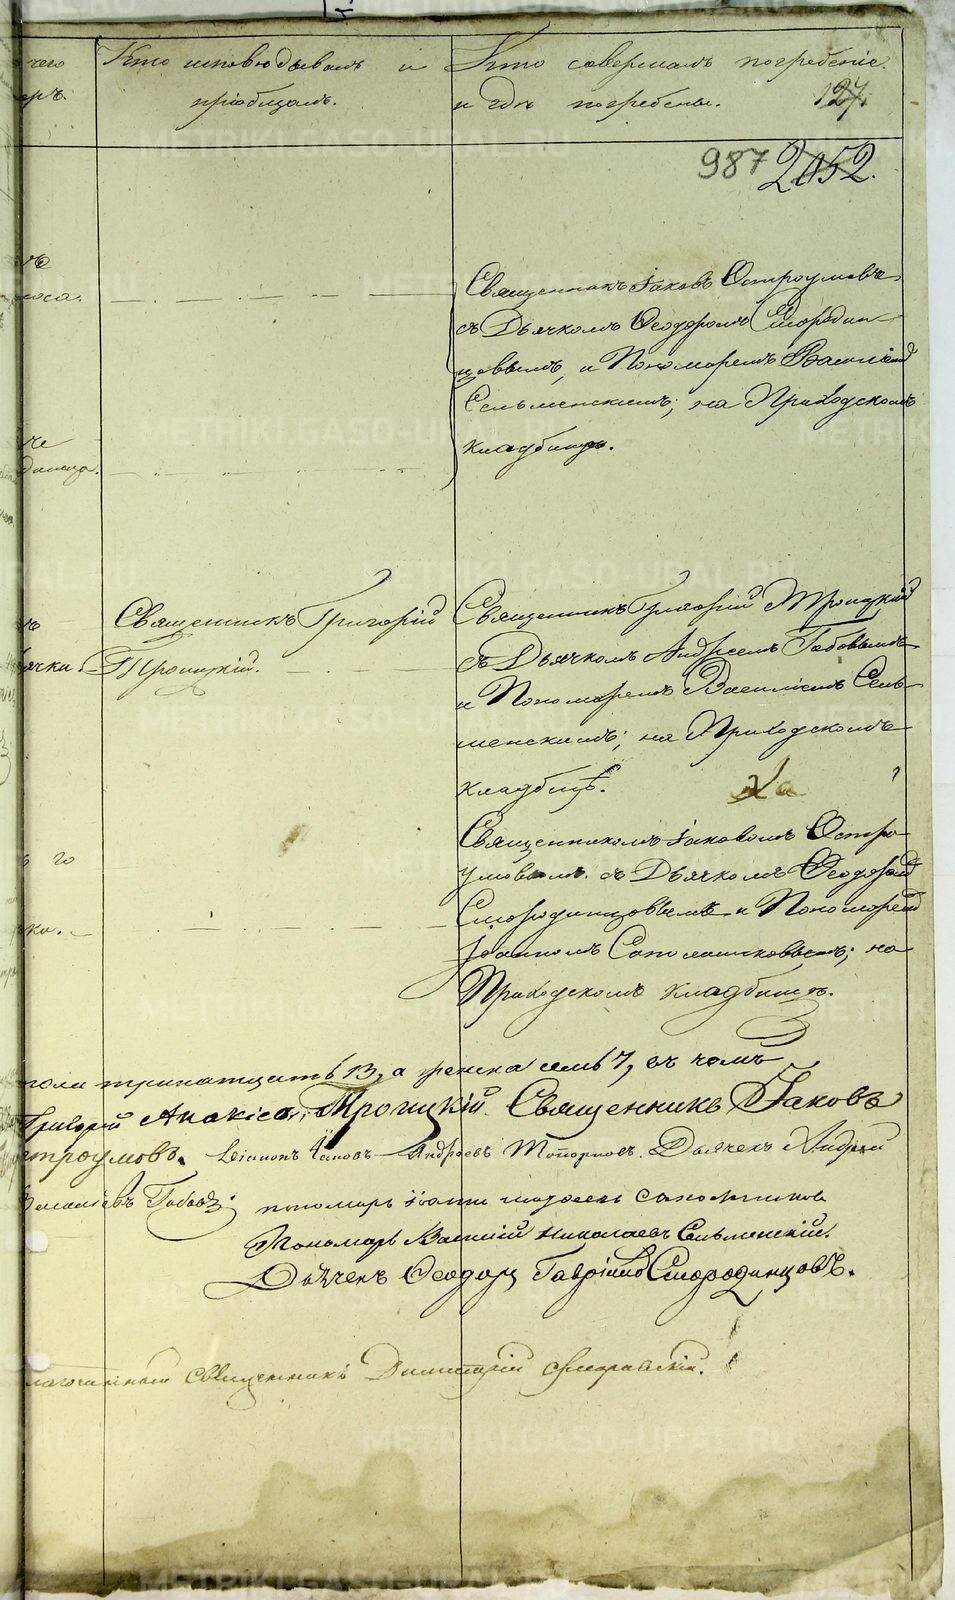 чего Кто исповѣдывалъ и Кто совершалъ погребеніе
еръ. пріобщалъ. и гдѣ погребены. 127.
987 2052.
Священникъ Іаковъ Остроумовъ
съ Дьячкомъ Ѳеодоромъ Смородин-
цовымъ, и Пономаремъ Василіемъ
Сельменскимъ; на Приходскомъ
кладбищѣ.
Священникъ Григорій
Троицкій.
Священникъ Григорій Троицкій
съ Дьячкомъ Андреемъ Габовымъ
и Пономаремъ Василіемъ Сель-
менскимъ; на Приходскомъ
кладбищѣ.
Священникомъ Іаковомъ Остро-
умовымъ съ Дьячкомъ Ѳеодоромъ
Смородинцовымъ и Пономаремъ
Іоанномъ Сапожниковымъ; на
Приходскомъ кладбищѣ.
пола тринатцать 13, а женска семь 7, въ чемъ
Григорій Троицкій. Священникъ Іаковъ
строумовъ. Андреевъ Топорковъ. Дьячекъ Андрей
Габовъ; пономарь Іоаннъ Сапожниковъ
Пономарь Василій Николаевъ Сельменскій.
Дьячекъ Ѳеодоръ Гавріиловъ Смородинцовъ.
лагочинный священникъ Димитрій